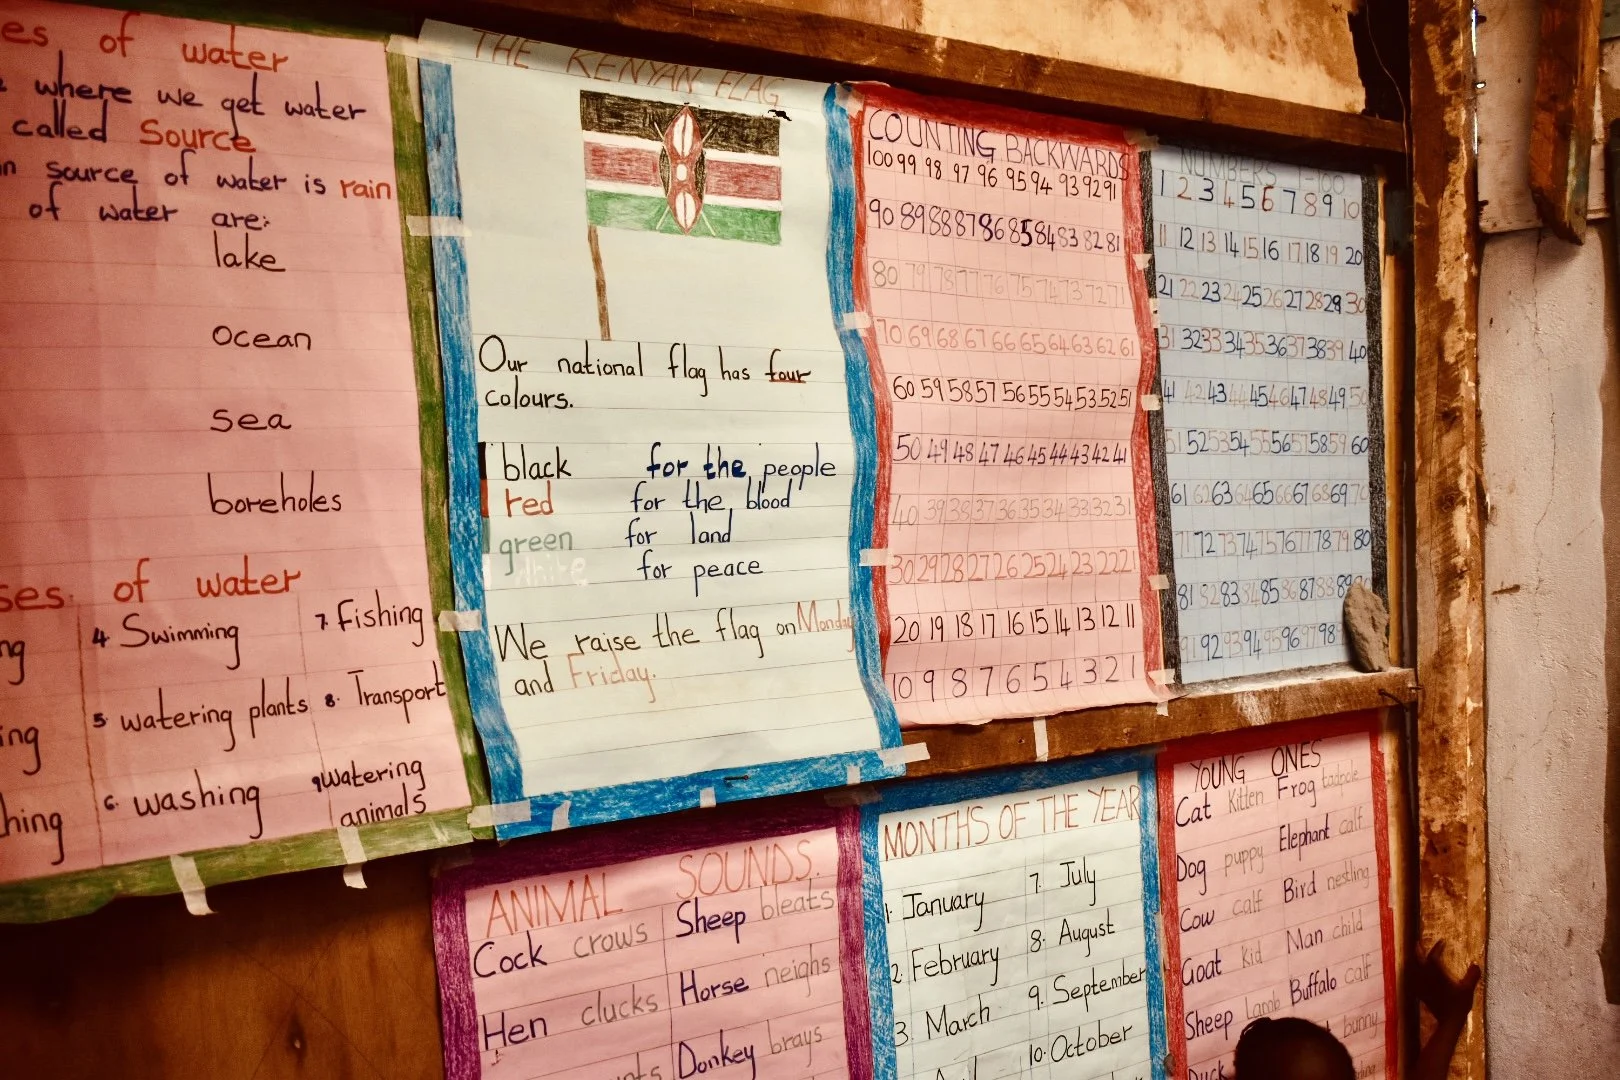 es of water
where we get water
called Source
source of water is rain
of water are:
lake
ocean
sea
boreholes
ses of water
ng 4. Swimming 7. Fishing
ing 5. watering plants 8. Transport
hing 6. washing 9 watering
animals
THE KENYAN FLAG
Our national flag has four
colours.
black for the people
red for the blood
green for land
white for peace
We raise the flag on Monday
and Friday.
COUNTING BACKWARDS
100 99 98 97 96 95 94 93 92 91
90 89 88 87 86 85 84 83 82 81
80 79 78 77 76 75 74 73 72 71
70 69 68 67 66 65 64 63 62 61
60 59 58 57 56 55 54 53 52 51
50 49 48 47 46 45 44 43 42 41
40 39 38 37 36 35 34 33 32 31
30 29 28 27 26 25 24 23 22 21
20 19 18 17 16 15 14 13 12 11
10 9 8 7 6 5 4 3 2 1
NUMBERS 1-100
1 2 3 4 5 6 7 8 9 10
11 12 13 14 15 16 17 18 19 20
21 22 23 24 25 26 27 28 29 30
31 32 33 34 35 36 37 38 39 40
41 42 43 44 45 46 47 48 49 50
51 52 53 54 55 56 57 58 59 60
61 62 63 64 65 66 67 68 69 70
71 72 73 74 75 76 77 78 79 80
81 82 83 84 85 86 87 88 89 90
91 92 93 94 95 96 97 98
ANIMAL SOUNDS.
Cock crows Sheep bleats
Hen clucks Horse neighs
Donkey brays
MONTHS OF THE YEAR
1. January 7. July
2. February 8. August
3. March 9. September
10. October
YOUNG ONES
Cat Kitten Frog tadpole
Dog puppy Elephant calf
Cow calf Bird nestling
Goat kid Man child
Sheep lamb Buffalo calf
bunny
Duck